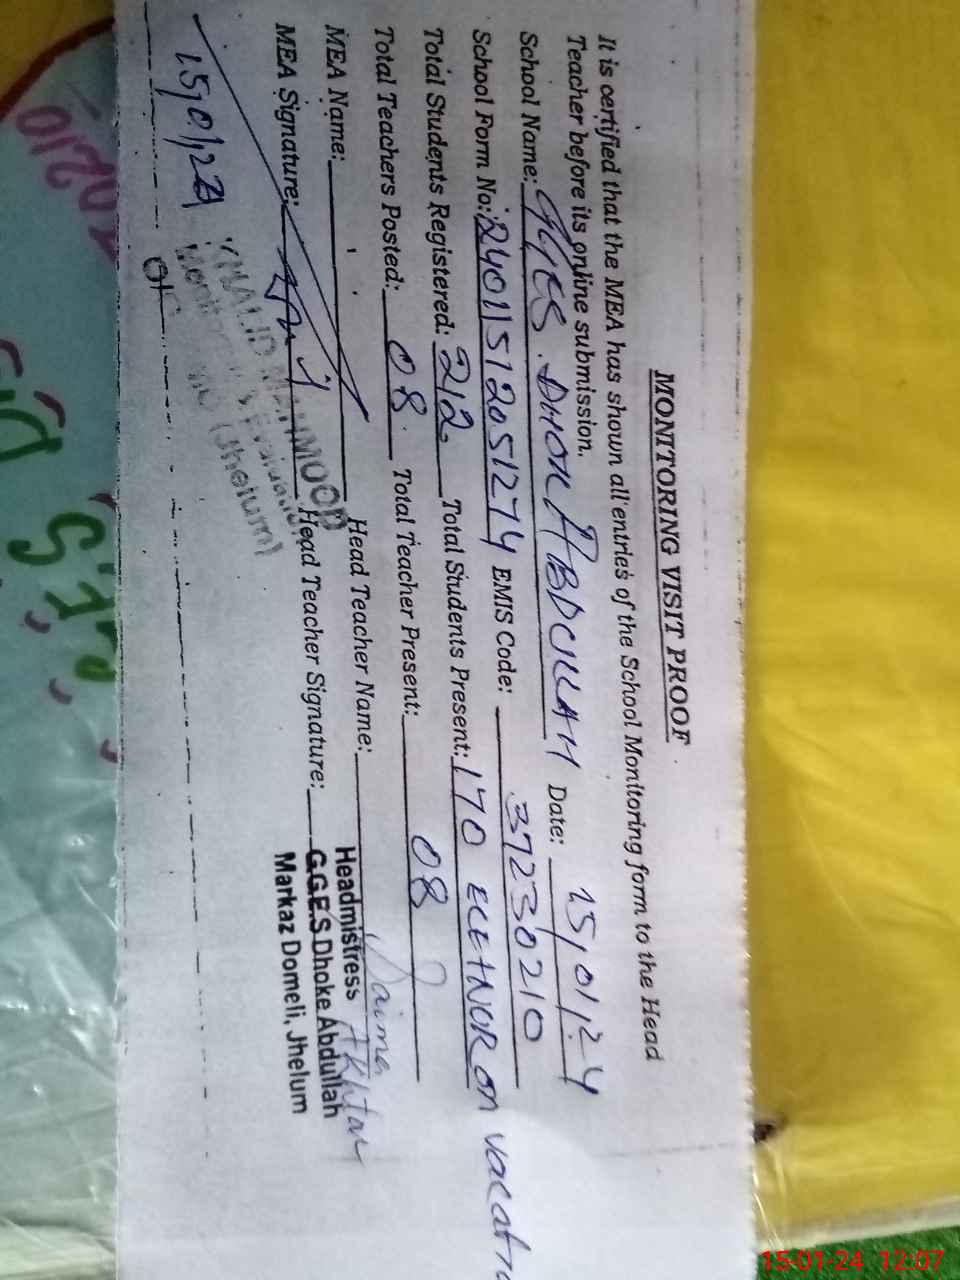 MONITORING VISIT PROOF
It is certified that the MEA has shown all entries of the School Monitoring form to the Head
Teacher before its online submission.
School Name: GGES. DHOK ABDULLAH Date: 15/01/24
School Form No: 24011512051274 EMIS Code: 37230210
Total Students Registered: 212 Total Students Present: 170 on
Total Teachers Posted: 08 Total Teacher Present: 08
MEA Name: Head Teacher Name: Saima Akhtar
MEA Signature: Head Teacher Signature:
Headmistress
G.G.E.S Dhoke Abdullah
Markaz Domeli, Jhelum
KHALID MEHMOOD
(Jhelum)
15/01/24
15-01-24 12:07